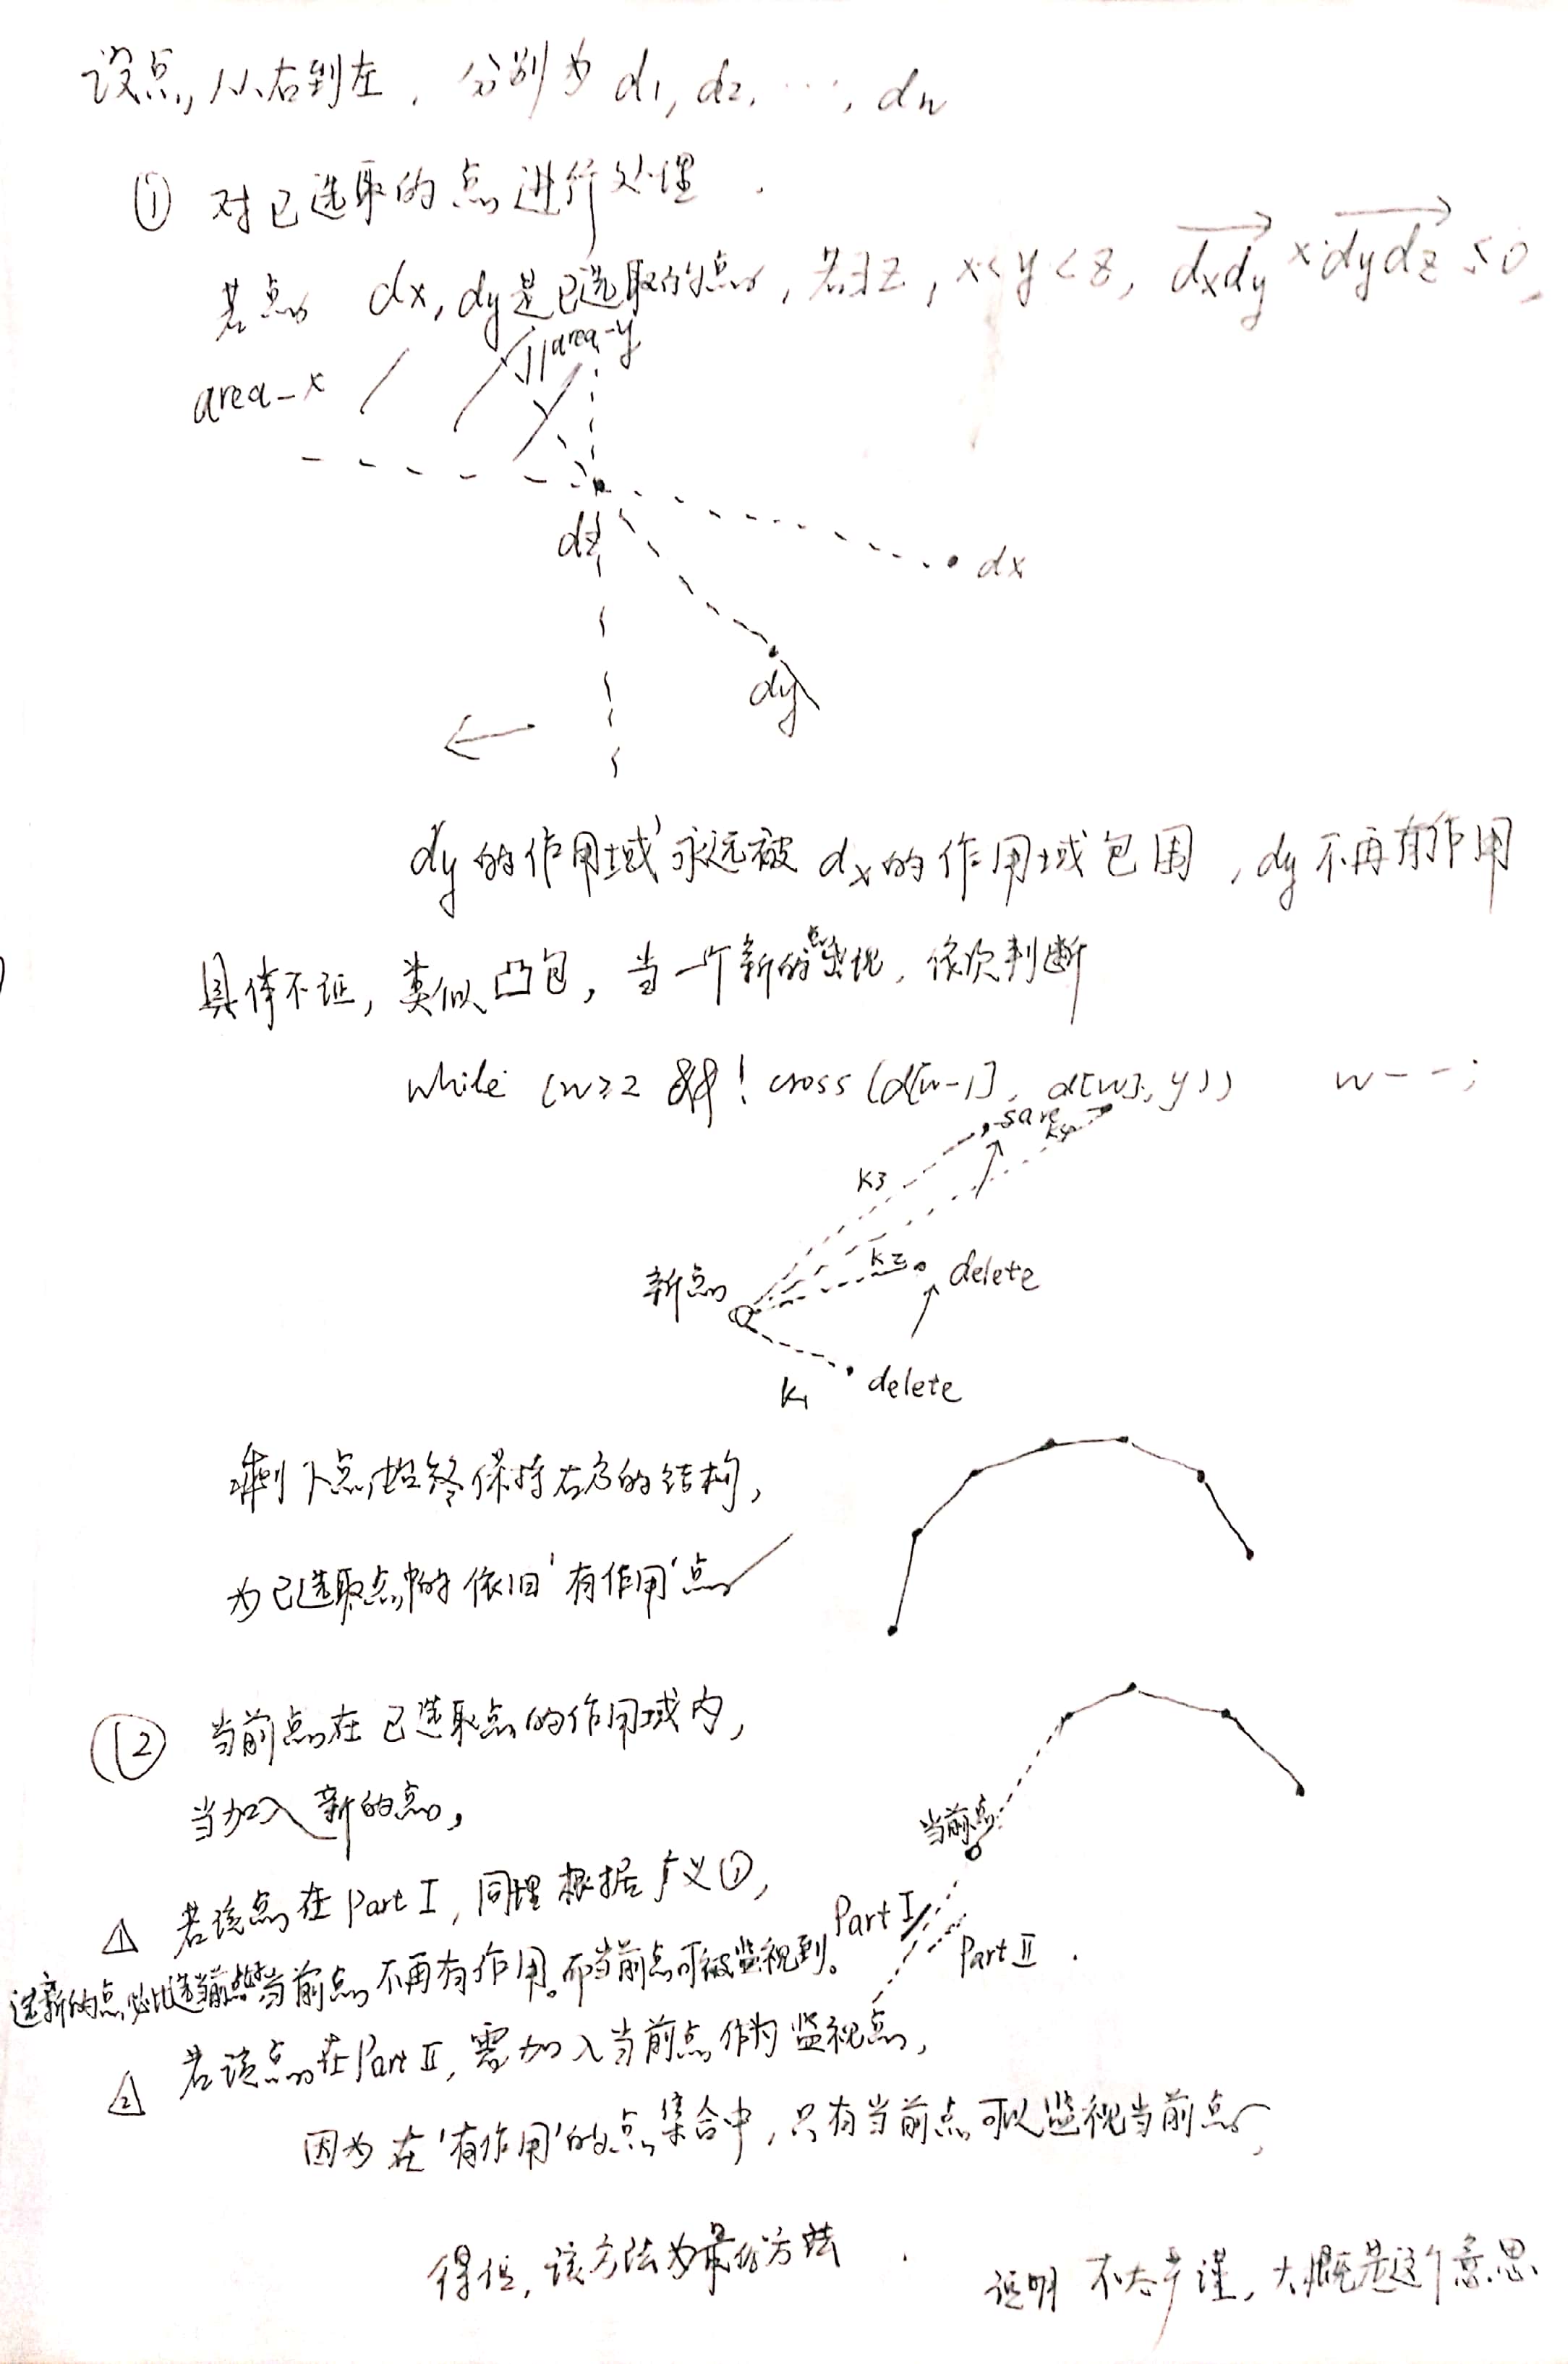 设点,从右到左,分别为 d1, d2, …, dn
① 对已选取的点进行处理.
若点 dx, dy是已选取的点,若∃z, x<y<z, dxdy × dydz ≤ 0,
area-x
area-y
dz
dx
dy
dy的'作用域'永远被 dx的作用域包围,dy不再有作用
具体不证,类似凸包,当一个新的点出现,依次判断
while (n≥2 && ! cross (d[n-1], d[n], y)) n--;
save
k3
k4
k2
新点
delete
k1
delete
剩下点始终保持右方的结构,
为已选取点中的依旧'有作用'点
② 当前点在已选取点的作用域内,
当加入新的点,
当前点
△1 若该点在 Part I, 同理根据广义①,
Part I
Part II
当前点不再有作用。而当前点可被监视到。
△2 若该点在Part II, 需加入当前点作为监视点,
因为在'有作用'的点集合中,只有当前点可以监视当前点,
得证,该方法为最优方法.
证明不太严谨,大概是这个意思